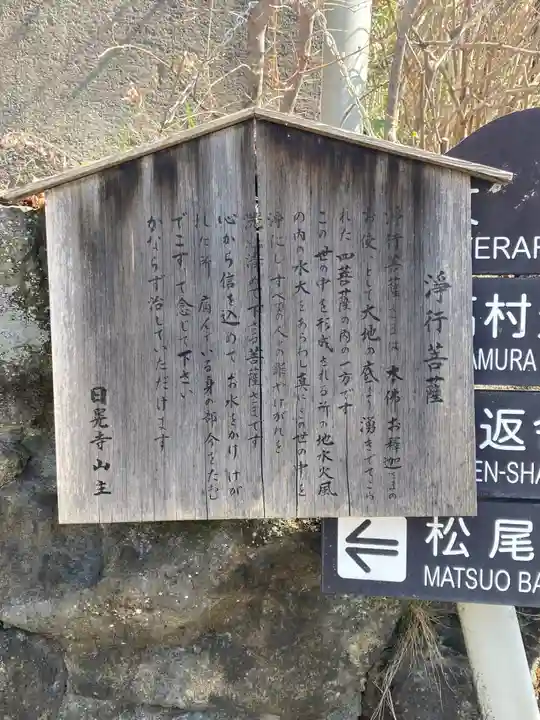 淨行菩薩
淨行菩薩さまは 本佛 お釋迦さまの
お使 として 大地の底より 湧きでてこら
れた 四菩薩の内の一方です
この世の中を形成される所の地水火風
の内の水大をあらわし 直に この世の中を
淨化し すべての人々の 罪やけがれを
洗い清めて下さる菩薩さまです
心から信を込めて お水をかけ けが
れた所 病んでいる身の部分をたわ
でこすって念じて下さい
かならず治していただけます
日晃寺山主
TERAR
村
AMURA
返
EN-SHA
松尾
MATSUO BA